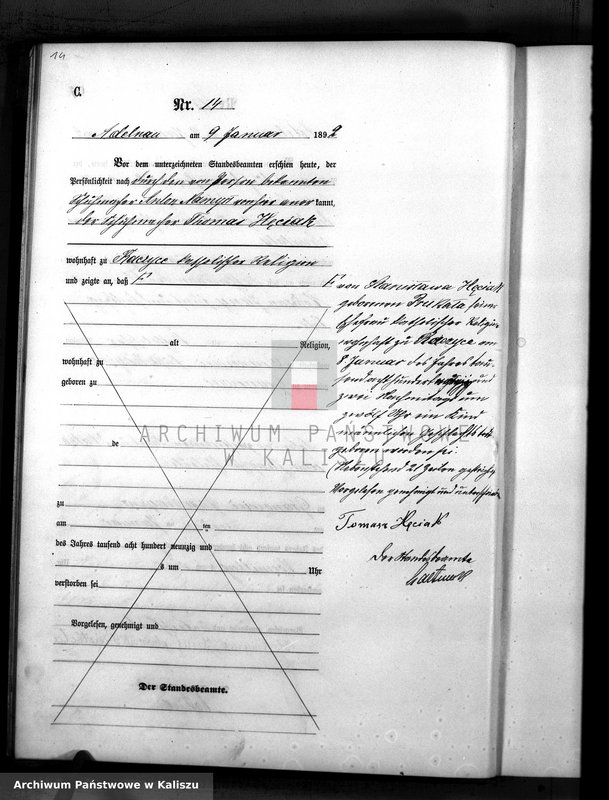 14
C.
Nr. 14
Adelnau am 9 Januar 1892
Vor dem unterzeichneten Standesbeamten erschien heute, der
Persönlichkeit nach durch den von Person bekannten
Schuhmacher Anton kannt,
der Schuhmacher Thomas Hęciak
wohnhaft zu Raczyce katholischer Religion
und zeigte an, daß
alt Religion,
wohnhaft zu
geboren zu
de
zu
am ten
des Jahres tausend acht hundert neunzig und
s um Uhr
verstorben sei
Vorgelesen, genehmigt und
Der Standesbeamte.
von Stanisława Hęciak
geborenen seiner
Ehefrau katholischer Religion
wohnhaft zu Raczyce am
8 Januar des Jahres tau-
send achthundert neunzig und
zwei Nachmittags um
zwölf Uhr ein Kind
männlichen Geschlechts todt
geboren worden sei
Nebenstehend 21 Zeilen gestrichen
Vorgelesen genehmigt und unterschrieben
Tomasz Hęciak
Der Standesbeamte
ARCHIWUM PAŃSTWOWE
W KALISZU
Archiwum Państwowe w Kaliszu